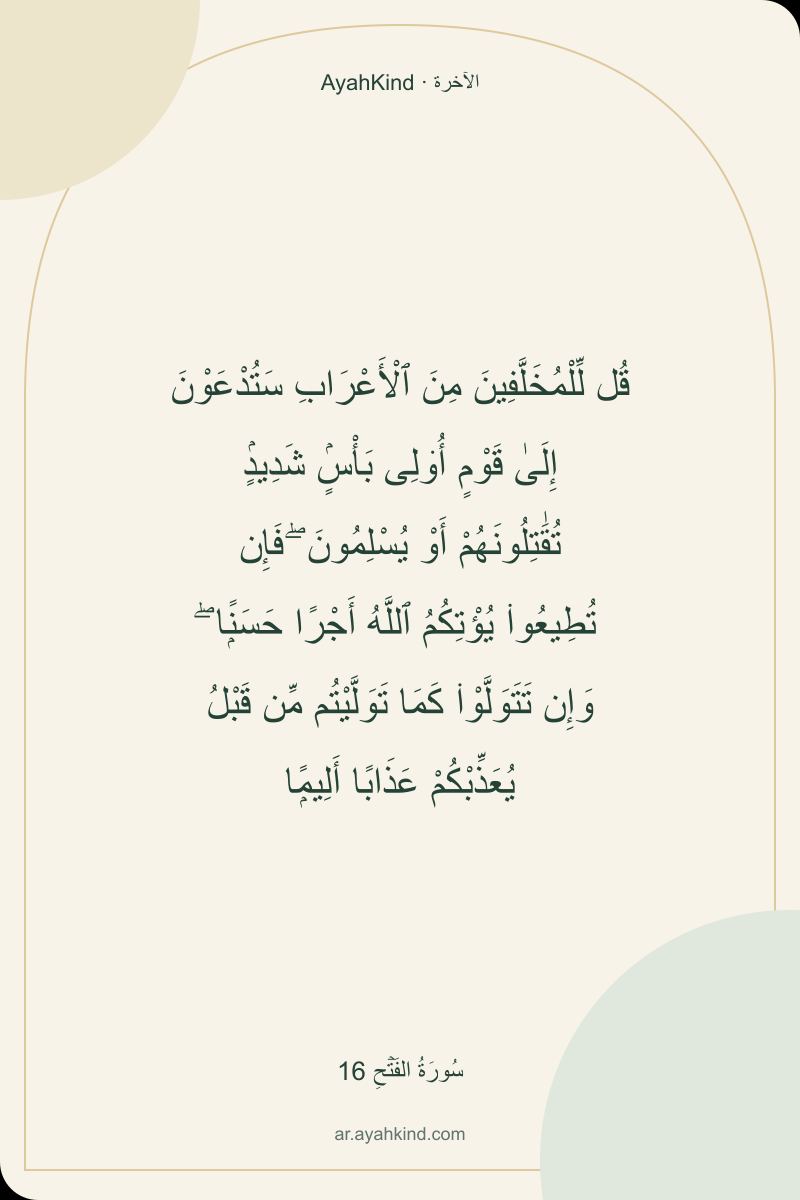 AyahKind · الآخرة
قُل لِّلْمُخَلَّفِينَ مِنَ ٱلْأَعْرَابِ سَتُدْعَوْنَ
إِلَىٰ قَوْمٍ أُو۟لِى بَأْسٍۢ شَدِيدٍۢ
تُقَٰتِلُونَهُمْ أَوْ يُسْلِمُونَ ۖ فَإِن
تُطِيعُوا۟ يُؤْتِكُمُ ٱللَّهُ أَجْرًا حَسَنًۭا ۖ
وَإِن تَتَوَلَّوْا۟ كَمَا تَوَلَّيْتُم مِّن قَبْلُ
يُعَذِّبْكُمْ عَذَابًا أَلِيمًۭا
سُورَةُ الفَتۡحِ 16
ar.ayahkind.com